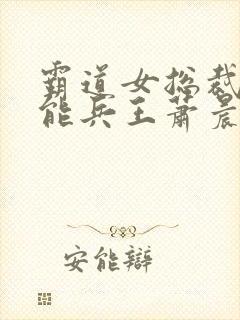 霸道女总裁
能兵王萧晨
安能辩